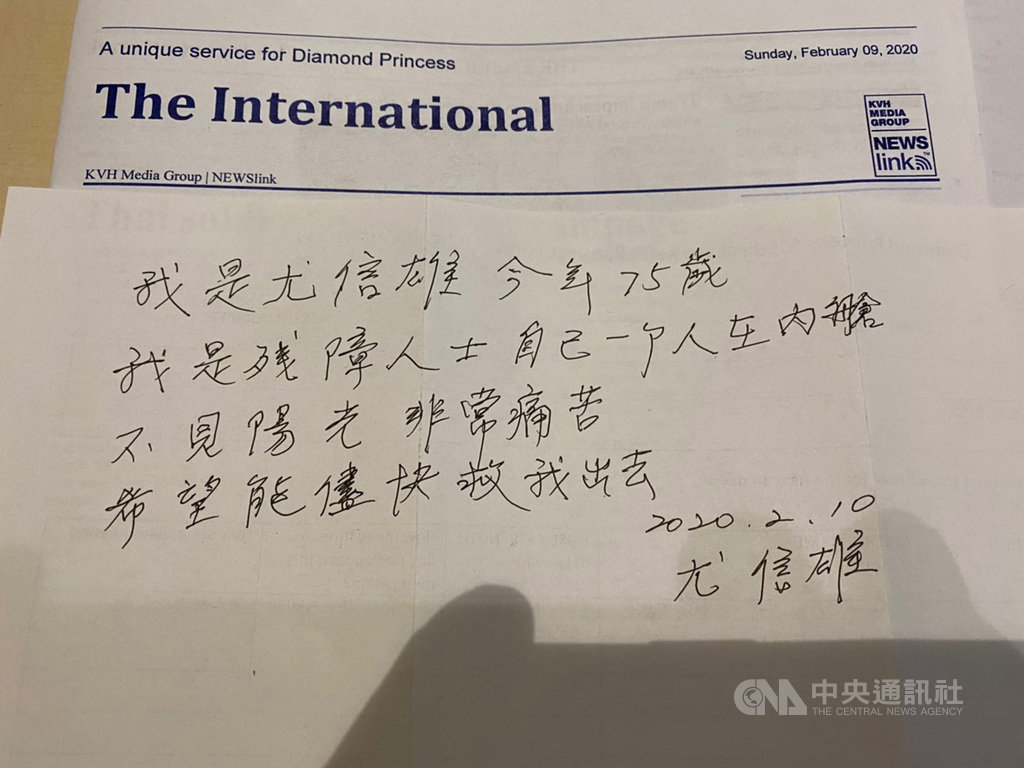 A unique service for Diamond Princess
Sunday, February 09, 2020
The International
KVH MEDIA GROUP
NEWS link™
KVH Media Group | NEWSlink
我是尤信雄 今年75歲
我是残障人士 自己一个人在内艙
不見陽光 非常痛苦
希望能儘快救我出去
2020.2.10
尤信雄
CNA 中央通訊社
THE CENTRAL NEWS AGENCY